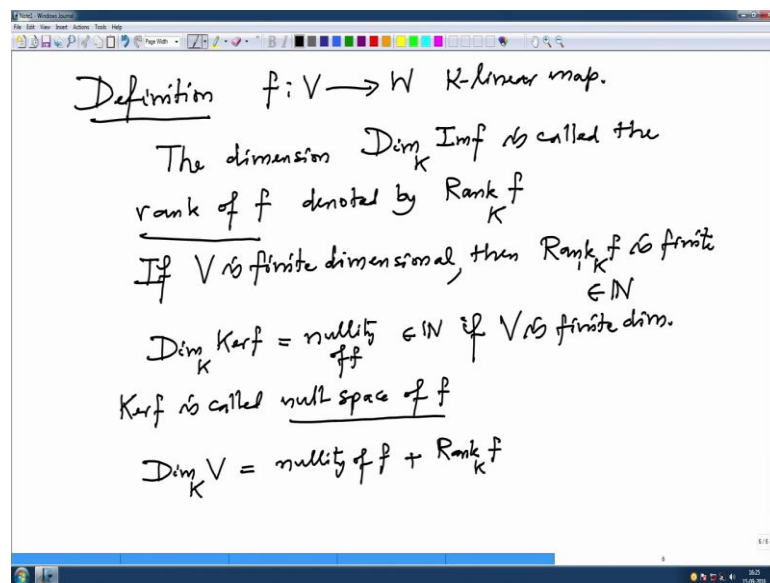 Note1 - Windows Journal
File Edit View Insert Actions Tools Help
Page Width
Definition f : V → W K-linear map.
The dimension Dim_K Imf is called the
rank of f denoted by Rank_K f
If V is finite dimensional, then Rank_K f is finite
∈ ℕ
Dim_K Kerf = nullity of f ∈ ℕ if V is finite dim.
Kerf is called null space of f
Dim_K V = nullity of f + Rank_K f
6/6
6
16:25